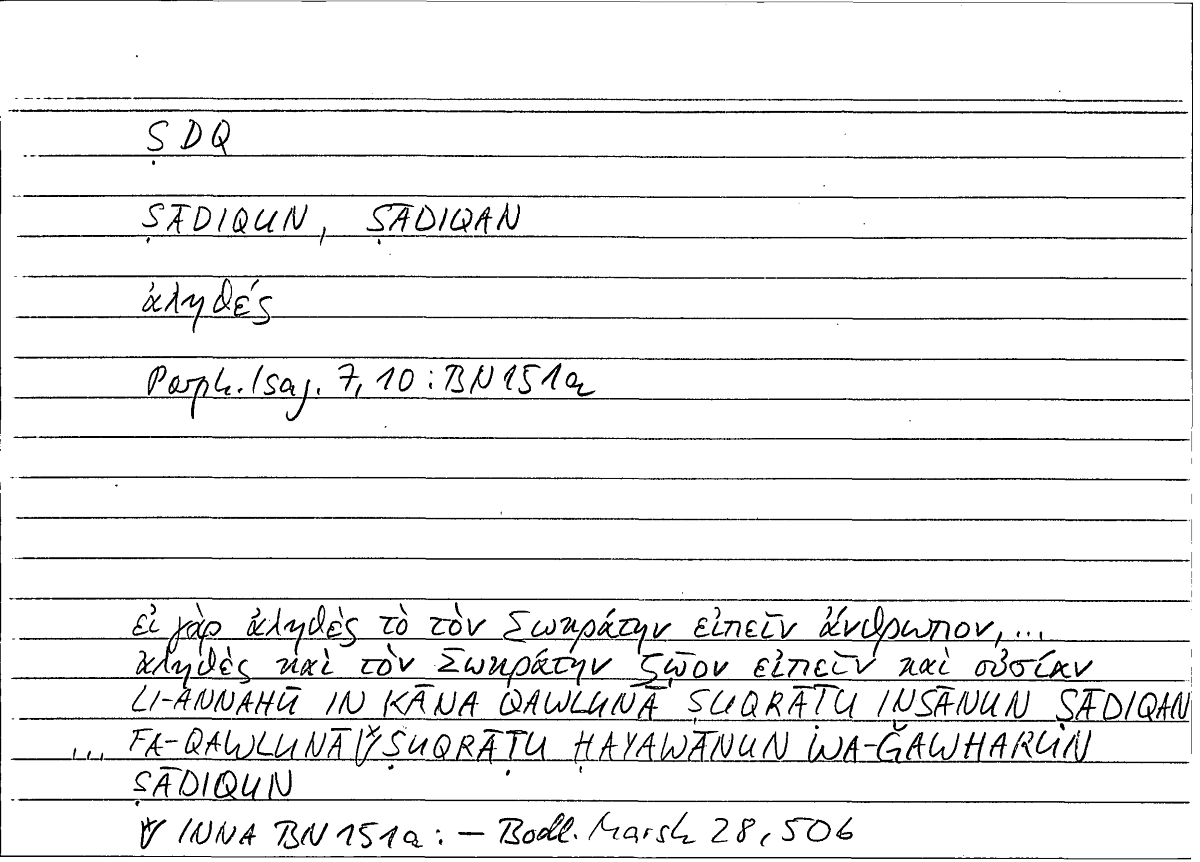 ṢDQ
ṢĀDIQUN, ṢĀDIQAN
ἀληθές
Porph. Isag. 7, 10 : BN 151a
εἰ γὰρ ἀληθὲς τὸ τὸν Σωκράτην εἰπεῖν ἄνθρωπον, ...
ἀληθὲς καὶ τὸν Σωκράτην ζῷον εἰπεῖν καὶ οὐσίαν
LI-ANNAHŪ IN KĀNA QAWLUNĀ ṢUQRĀṬU INSĀNUN ṢĀDIQAN
... FA-QAWLUNĀ ṢUQRĀṬU ḤAYAWĀNUN WA-ǦAWHARUN
ṢĀDIQUN
INNA BN 151a : – Bodl. Marsh 28, 50b